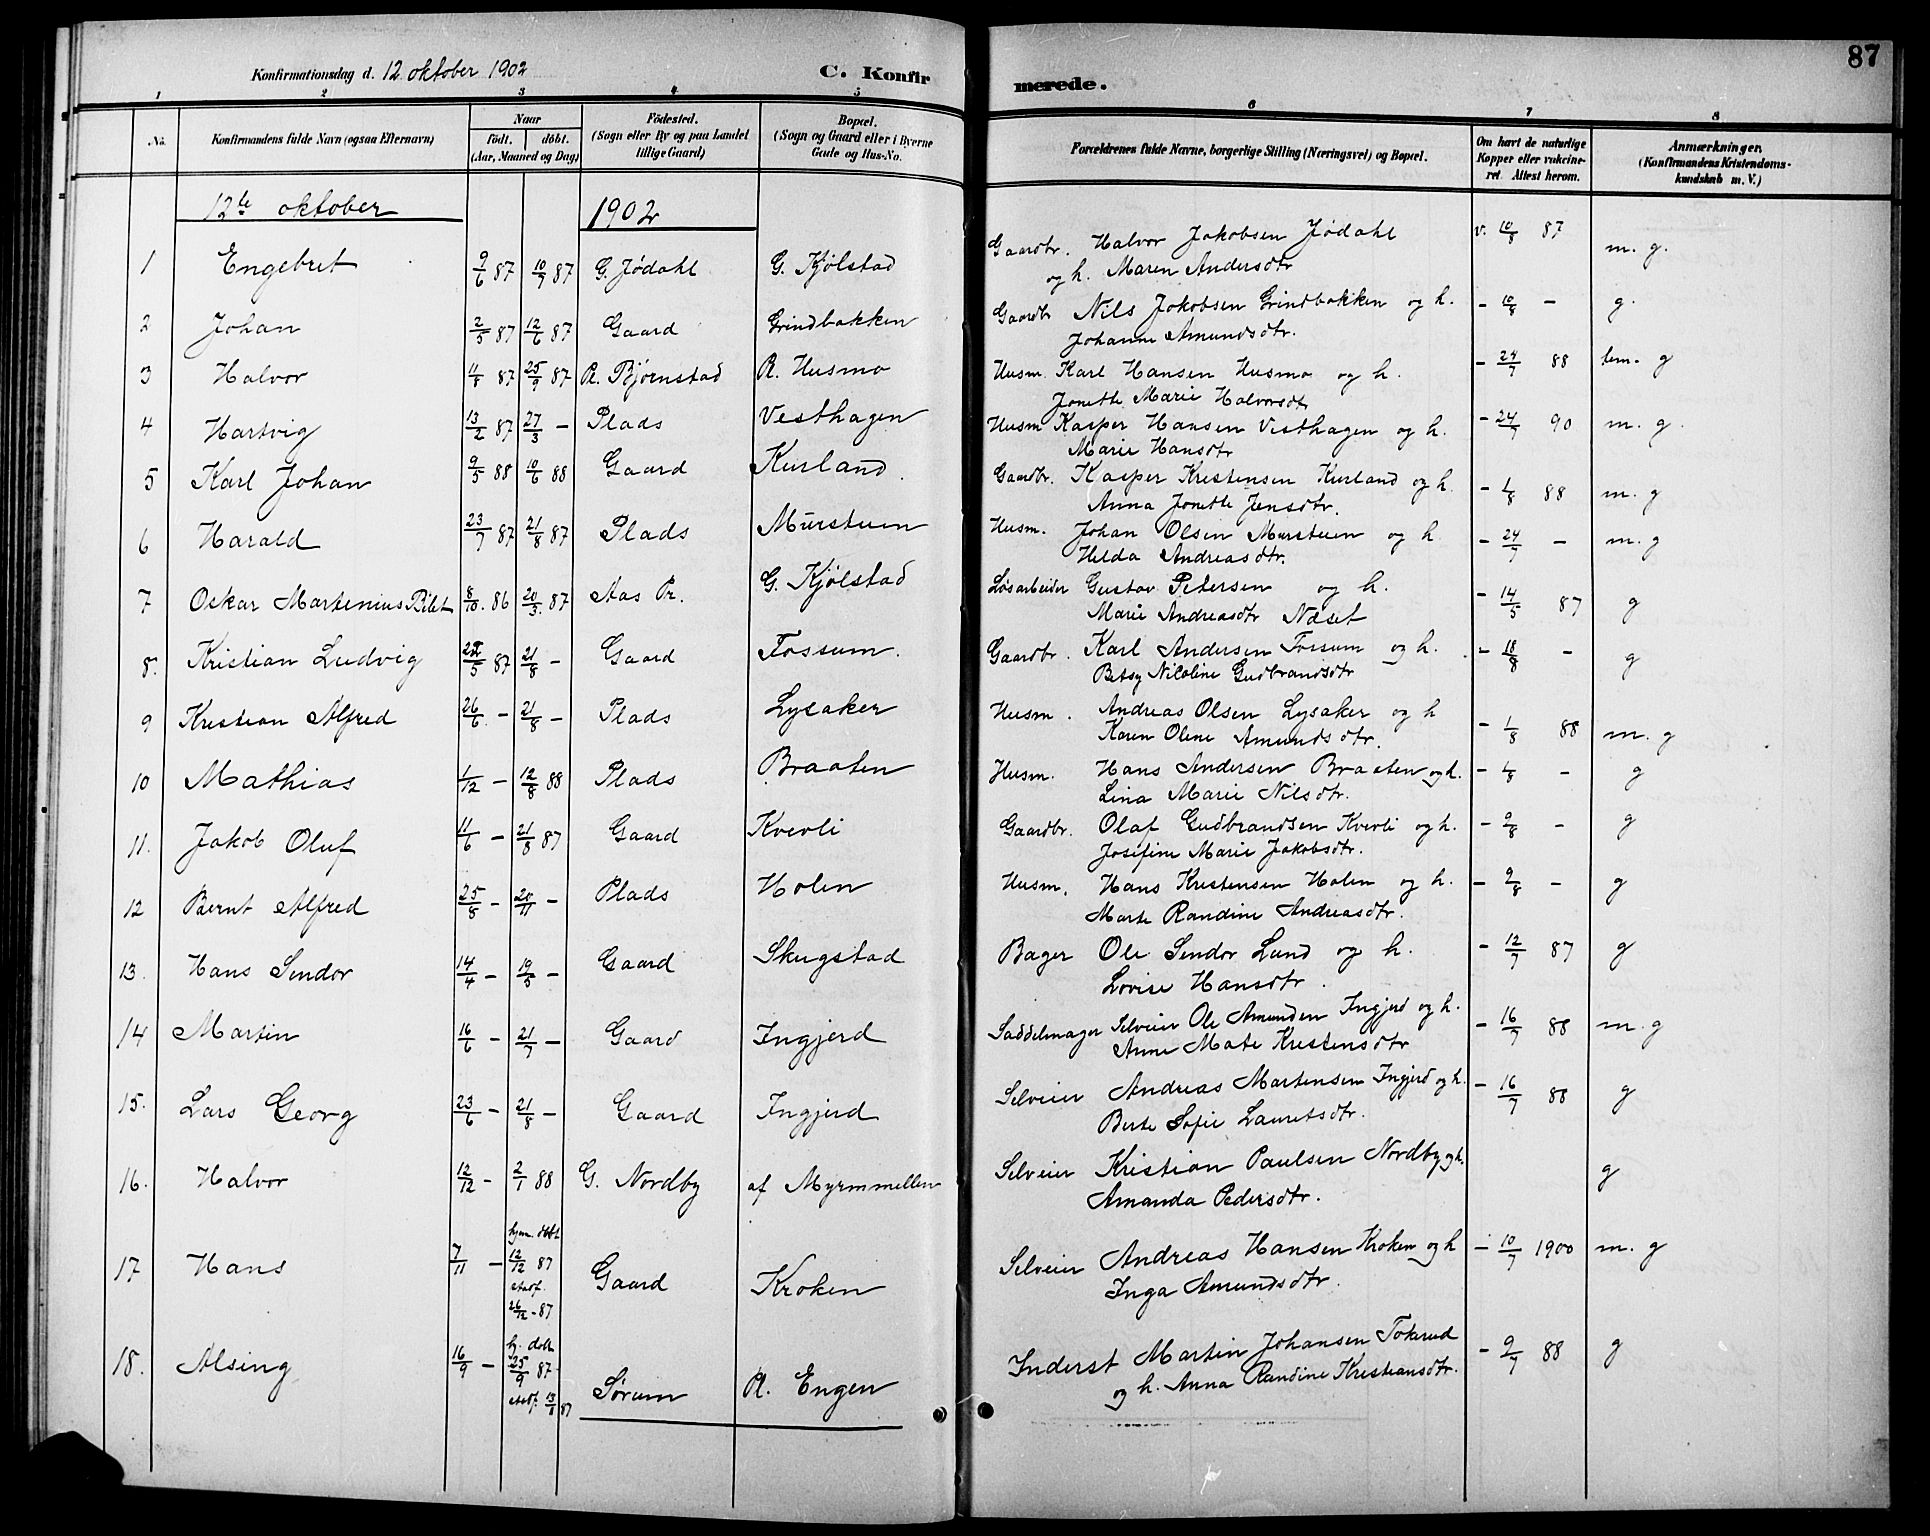 87
Konfirmationsdag d. 12 oktober 1902 C. Konfirmerede.
1 2 3 4 5 6 7 8
No.
Konfirmandens fulde Navn (ogsaa Efternavn)
Naar
födt. döbt.
(Aar, Maaned og Dag)
Födested.
(Sogn eller By og paa Landet
tillige Gaard)
Bopæl.
(Sogn og Gaard eller i Byerne
Gade og Hus-No.
Forældrenes fulde Navne, borgerlige Stilling (Næringsvei) og Bopæl.
Om havt de naturlige
Kopper eller vakcine-
ret Attest herom.
Anmærkninger.
(Konfirmandens Kristendoms-
kundskab m. V.)
12te oktober 1902
1 Engebret 9/6 87 10/7 87 G. Jødahl G. Kjølstad Gaardbr. Halvor Jakobsen Jødahl v. 10/8 87 m. g.
og h. Maren Andersdtr
2 Johan 2/5 87 12/6 87 Gaard Grindbakken Gaardbr Nils Jakobsen Grindbakken og h. - 10/8 - g.
Johanne Amundsdtr.
3 Halvor 11/8 87 25/9 87 Pl. Bjørnstad Pl. Husmo Husm. Karl Hansen Husmo og h. - 24/7 88 tem. g
Jonette Marie Halvorsdtr
4 Hartvig 13/2 87 27/3 - Plads Vesthagen Husm Kasper Hansen Vesthagen og h. - 24/7 90 m. g.
Marie Hansdtr
5 Karl Johan 9/5 88 10/6 88 Gaard Kurland Gaardbr. Kasper Kristensen Kurland og h - 1/8 88 m. g
Anna Jonette Jensdtr.
6 Harald 23/7 87 21/8 87 Plads Murstuen Husm. Johan Olsen Murstuen og h - 24/7 - m. g
Helda Andreasdtr.
7 Oskar Martenius Bilet 8/10. 86 20/3. 87 Aas Pr. G. Kjølstad Løsarbeider Gustav Petersen og h. - 14/5 87 g
Marie Andreasdtr Næset
8. Kristian Ludvig 22/5 87 21/8 - Gaard Fossum. Gaardbr. Karl Andersen Fossum og h. - 18/8 - g
Betsy Nicoline Gudbrandsdtr
9 Kristian Alfred 26/6 - 21/8 - Plads Lysaker Husm. Andreas Olsen Lysaker og h - 1/8 88 m. g
Karen Oline Amundsdtr.
10 Mathias 1/12 - 12/8 88 Plads Braaten Husm. Hans Andersen Braaten og h. - 1/8 - g
Lina Marie Nilsdtr.
11. Jakob Oluf 11/6 - 21/8 87 Gaard Kverli Gaardbr. Olaf Gudbrandsen Kverli og h. - 9/8 - g
Josefine Marie Jakobsdtr.
12 Bernt Alfred 25/8 - 20/11 - Plads Holen Husm. Hans Kristensen Holen og h. - 9/8 - g
Marte Randine Andreasdtr.
13. Hans Sendor 14/4 - 19/5 - Gaard Skugstad Bager Ole Sendor Lund og h. - 12/7 87 g
Lovise Hansdtr.
14 Martin 16/6 - 21/7 - Gaard Ingjerd Saddelmager Selveier Ole Amunden Ingjerd og h. - 16/7 88 m. g
Anne Mate Kristensdtr
15. Lars Georg 23/6 - 21/8 - Gaard Ingjerd Selveier Andreas Martensen Ingjerd og h. - 16/7 88 g
Berte Sofie Lauretsdtr.
16. Halvor 12/12 - 2/1 88 G. Nordby af Myrmmellen Selveier Kristian Paulsen Nordby og h. g
Amanda Pedersdtr.
17 Hans 7/11 - hjem. døbt 12/12 87 stadf. 26/12 - 87 Gaard Kroken Selveier Andreas Hansen Kroken og h - 10/7 1900 m. g
Inga Amundsdtr.
18. Alsing 16/9 - hj. døbt 25/9 87 stadf. 13/11 87 Sørum Pl. Engen Inderst Martin Johansen Tokerud - 9/7 88 g
og h. Anna Randine Kristiansdtr.